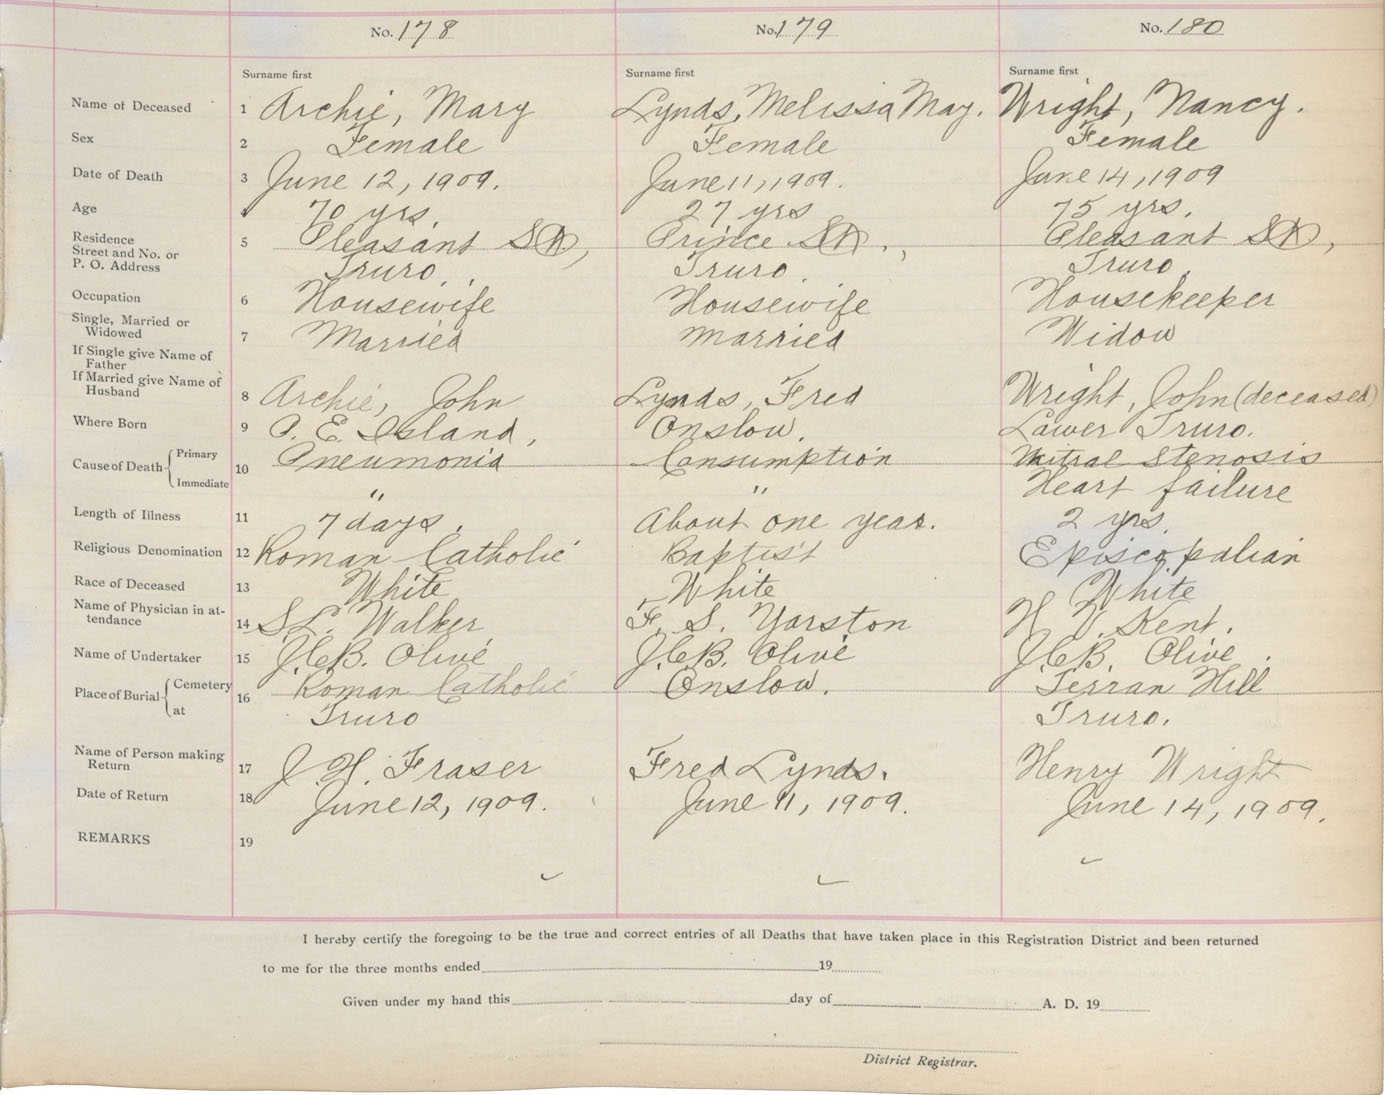 No. 178 No. 179 No. 180
Surname first Surname first Surname first
Name of Deceased 1 Archie, Mary Lynds, Melissa May. Wright, Nancy.
Sex 2 Female Female Female
Date of Death 3 June 12, 1909. June 11, 1909. June 14, 1909
Age 4 70 yrs. 27 yrs 75 yrs.
Residence
Street and No. or
P. O. Address
5 Pleasant St, Prince St., Pleasant St,
Truro. Truro. Truro
Occupation 6 Housewife Housewife Housekeeper
Single, Married or
Widowed
7 Married married Widow
If Single give Name of
Father
If Married give Name of
Husband
8 Archie, John Lynds, Fred Wright, John (deceased)
Where Born 9 P. E. Island, Onslow. Lower Truro.
Cause of Death { Primary 10 Pneumonia Consumption Mitral Stenosis
Immediate " " Heart failure
Length of Illness 11 7 days. About one year. 2 yrs.
Religious Denomination 12 Roman Catholic Baptist Episcopalian
Race of Deceased 13 White White White
Name of Physician in at-
tendance
14 S.L. Walker F. S. Yorston H. V. Kent.
Name of Undertaker 15 J.C.B. Olive J.C.B. Olive J.C.B. Olive.
Place of Burial { Cemetery 16 Roman Catholic Onslow. Terran Hill
at Truro Truro.
Name of Person making
Return
17 J. H. Fraser Fred Lynds. Henry Wright
Date of Return 18 June 12, 1909. June 11, 1909. June 14, 1909.
REMARKS 19
I hereby certify the foregoing to be the true and correct entries of all Deaths that have taken place in this Registration District and been returned
to me for the three months ended 19
Given under my hand this day of A. D. 19
District Registrar.